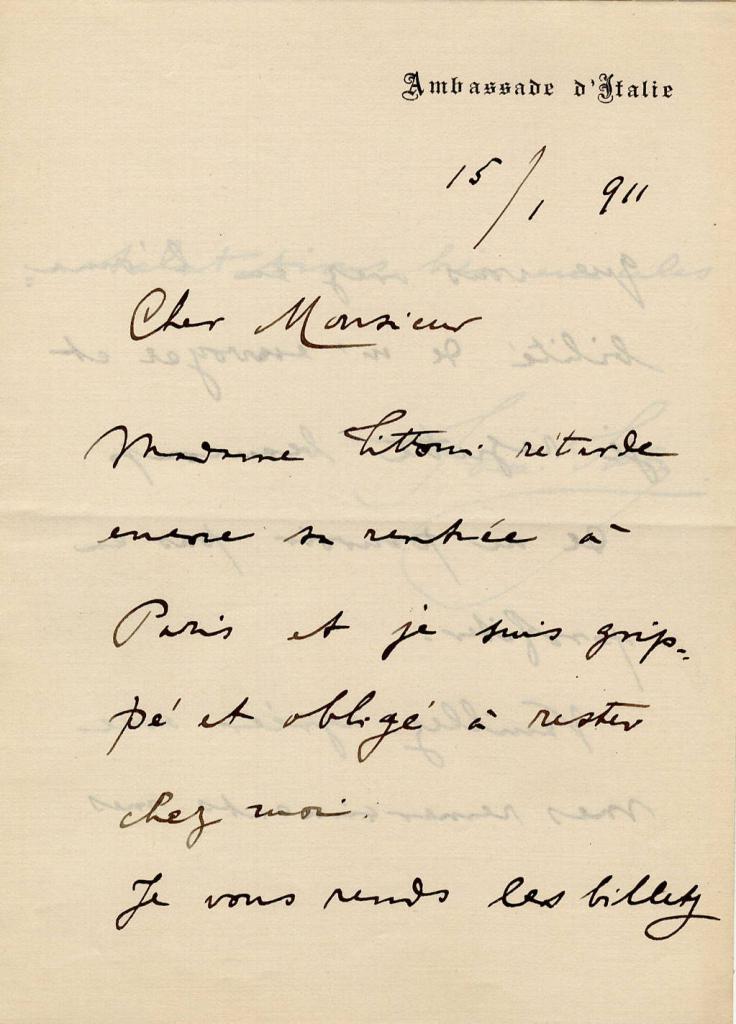 Ambassade d'Italie
15/1 911
Cher Monsieur
Madame Tittoni rétarde
encore sa rentrée à
Paris et je suis grip-
pé et obligé à rester
chez moi.
Je vous rends les billets